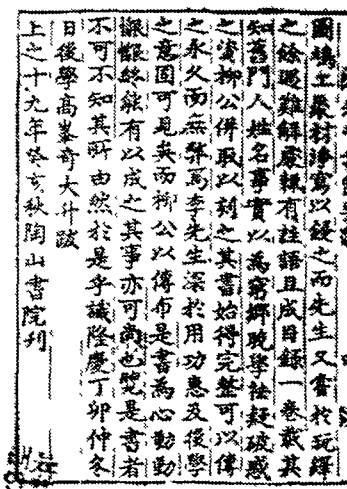 圖鳩工聚材淨寫以鋟之而先生又嘗於玩繹
之餘遇難解處輒有註語且成目錄一卷載其
知舊門人姓名事實以為窮鄉晚學祛疑破惑
之資柳公併取以刻之其書始得完整可以傳
之永久而無弊焉李先生深於用功惠及後學
之意固可見矣而柳公以傳布是書為心勤勤
懇懇終能有以成之其事亦可尚也覽是書者
不可不知其所由然於是乎識隆慶丁卯仲冬
日後學高峯奇大升跋
上之十九年癸亥秋陶山書院刊